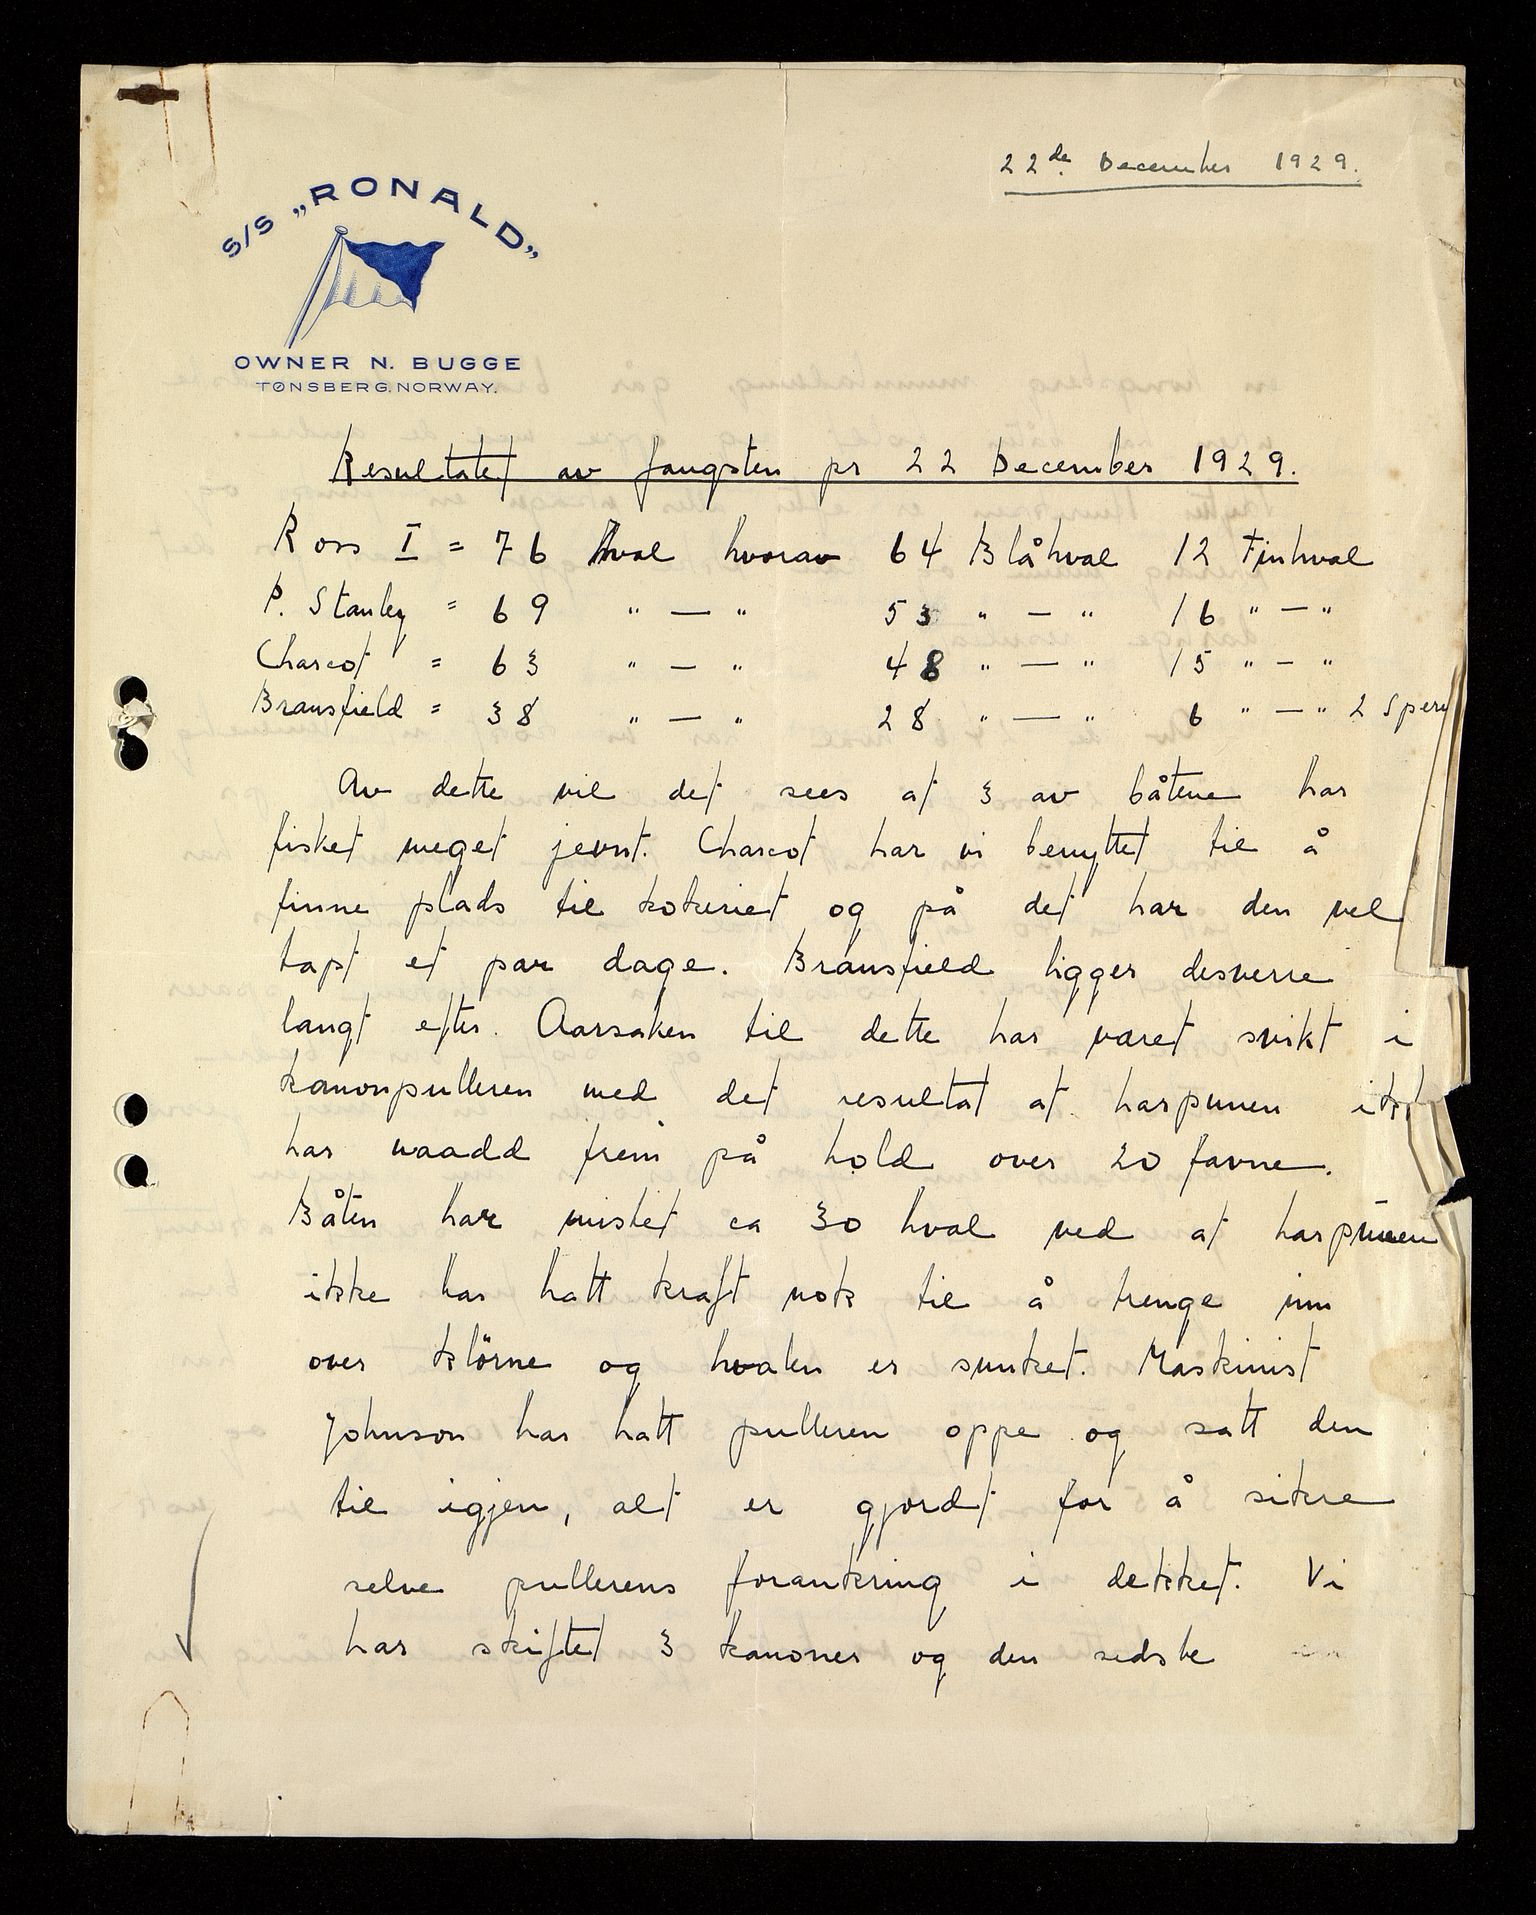 22de December 1929.
S/S „RONALD”
OWNER N. BUGGE
TØNSBERG, NORWAY.
Resultatet av fangsten pr 22 December 1929.
Ross I = 76 hval hvorav 64 Blåhval 12 Finhval
P. Stanley = 69 " — " 53 " — " 16 " — "
Charcot = 63 " — " 48 " — " 15 " — "
Bransfield = 38 " — " 28 " — " 6 " — " 2 Sperm
Av dette vil det sees at 3 av båtene har
fisket meget jevnt. Charcot har vi benyttet til å
finne plads til kokeriet og på det har den vel
tapt et par dage. Bransfield ligger desverre
langt efter. Aarsaken til dette har været svikt i
kanonpulleren med det resultat at harpunen ikke
har naadd frem på hold over 20 favne.
Båten har mistet ca 30 hval ved at harpunen
ikke har hatt kraft nok til å trenge inn
over klörne og hvalen er sunket. Maskinist
Johnson har hatt pulleren oppe og satt den
til igjen, alt er gjordt for å sikre
selve pullerens forankring i dekket. Vi
har skiftet 3 kanoner og den sidste